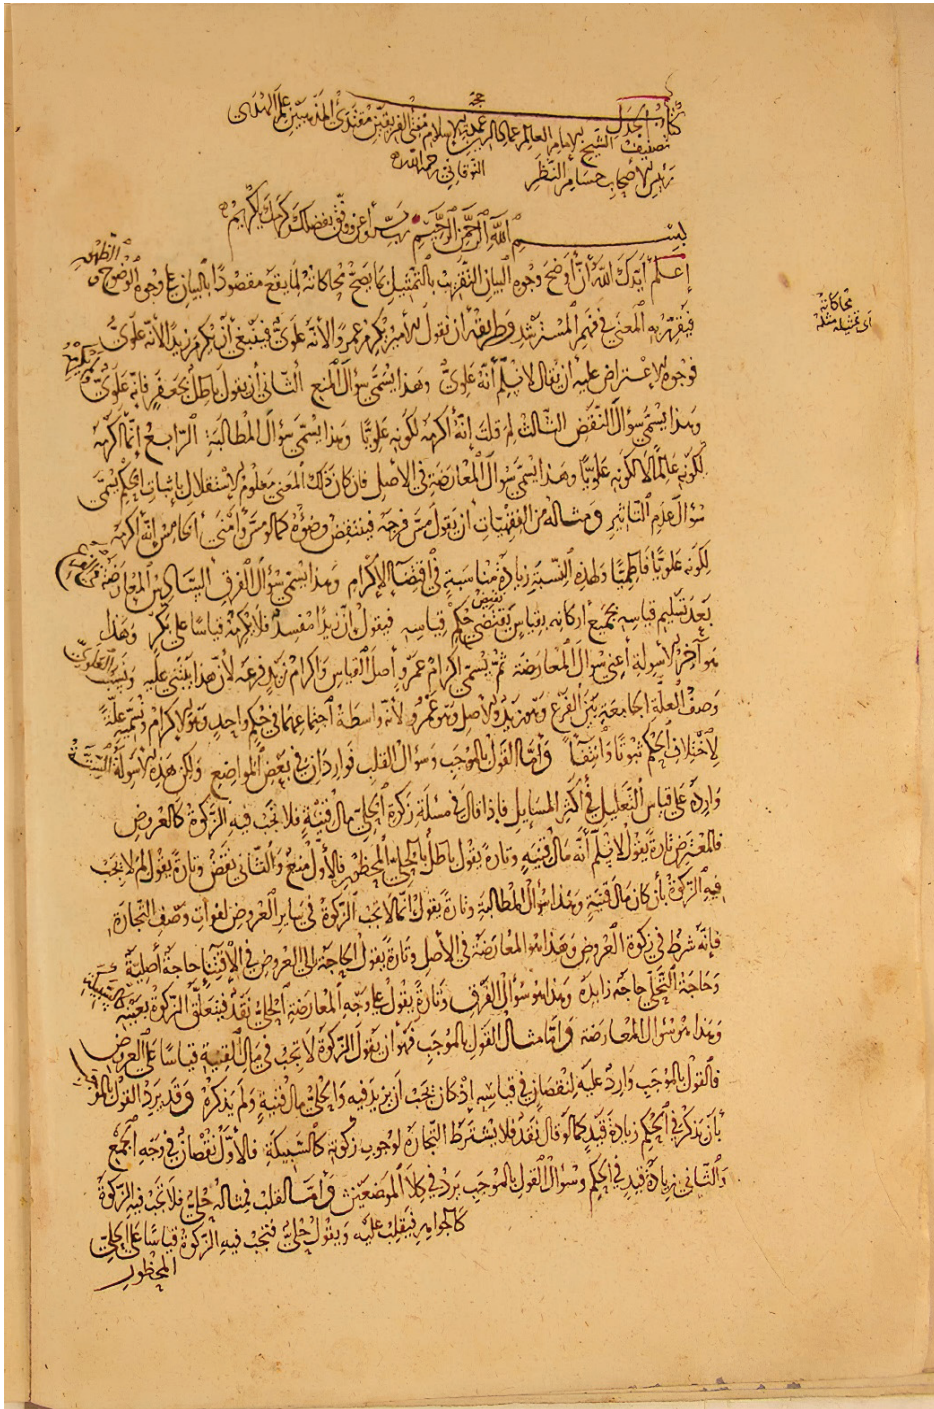 كتاب الجدل
تصنيف الشيخ الإمام العالم عماد الدين عمدة الإسلام مفتي الفريقين مقتدى المذهبين علم الهدى
حجة
رئيس الأصحاب حسام النظر النوقاني رحمه الله
بسم الله الرحمن الرحيم رب يسر وأعن ووفق بفضلك وكرمك يا كريم
إعلم أيدك الله أن أوضح وجوه البيان التقريب بالتمثيل بما يصح محاكاته لما يقع مقصودا بالبيان على وجوه الوضوح والظهور
محاكاته
أي تمثيله مثله
فيقرر به المعنى في فهم المسترشد وطريقه أن نقول الأمير يكرم عمرا لأنه علوي فينبغي أن يكرم زيدا لأنه علوي
فوجوه الإعتراض عليه أن يقال لا نسلم أنه علوي وهذا يسمى سؤال المنع الثاني أن يقول باطل بجعفر فإنه علوي ولم يكرمه
وهذا يسمى سؤال النقض الثالث لم قلت إنه أكرمه لكونه علويا وهذا يسمى سؤال المطالبة الرابع إنما أكرمه
لكونه عالما لا لكونه علويا وهذا يسمى سؤال المعارضة في الأصل فان كان ذلك المعنى معلوم الإستقلال بإثبات الحكم يسمى
سؤال عدم التاثير ومثاله من الفقهيات أن يقول مس فرجه فينتقض وضؤه كما لو مس وأمنى الخامس إنه أكرمه
لكونه علويا فاطميا ولهذه النسبة زيادة مناسبة في اقتضاء الإكرام وهذا يسمى سؤال الفرق السادس المعارضة
بعد تسليم قياسه بجميع أركانه بقياس يقتضي نقيض حكم قياسه فيقول إن زيدا مفسد فلا يكرمه قياسا على بكر وهذا
هو آخر الأسولة أعني سؤال المعارضة ثم يسمى إكرام عمرو أصل القياس وإكرام زيد فرعه لأن هذا يبتني عليه ونسب العلوي
وصف العلة الجامعة بين الفرع وهو زيد والأصل وهو عمرو لأنه واسطة اجتماعهما في حكم واحد وهو الإكرام وتسميه علة
لاختلاف الحكم ثبوتا وانتفاء وأما القول بالموجب وسؤال القلب فواردان في بعض المواضع ولكن هذه الأسولة الستة
واردة على قياس التعليل في أكثر المسايل فإذا قال في مسئلة زكوة الحلي مال قنية فلا تجب فيه الزكوة كالعروض
فالمعترض تارة يقول لا نسلم أنه مال قنية وتارة يقول باطل بالحلي المحظور فالأول منع والثاني نقض وتارة يقول لم لا يجب
فيه الزكوة بأن كان مال قنية وهذا سؤال المطالبة وتارة يقول إنما لا تجب الزكوة في ساير العروض لفوات وصف التجارة
فإنه شرط في زكوة العروض وهذا هو المعارضة في الأصل وتارة يقول الحاجة إلى العروض في الإقتناء حاجة أصلية
وحاجة التحلي حاجة زايدة وهذا هو سؤال الفرق وتارة يقول على وجه المعارضة الحلي نقد فيتعلق الزكوة بعينه
وهذا هو سؤال المعارضة وأما مثال القول بالموجب فهو أن يقول الزكوة لا تجب في مال القنية قياسا على العروض
فالقول بالموجب وارد عليه لنقصان في قياسه إذ كان يجب أن يزيد فيه والحلي مال قنية ولم يذكره وقد يرد القول بالموجب
بأن يذكر في الحكم زيادة قيد كما لو قال نقد فلا يشترط التجارة لوجوب زكوته كالسبيكة فالأول نقصان في وجه الجمع
والثاني زيادة قيد في الحكم وسؤال القول بالموجب يرد في كلا الموضعين وأما القلب فمثاله حلي فلا تجب فيه الزكوة
كالجواهر فيقلب عليه ويقول حلي فتجب فيه الزكوة قياسا على الحلي
المحظور